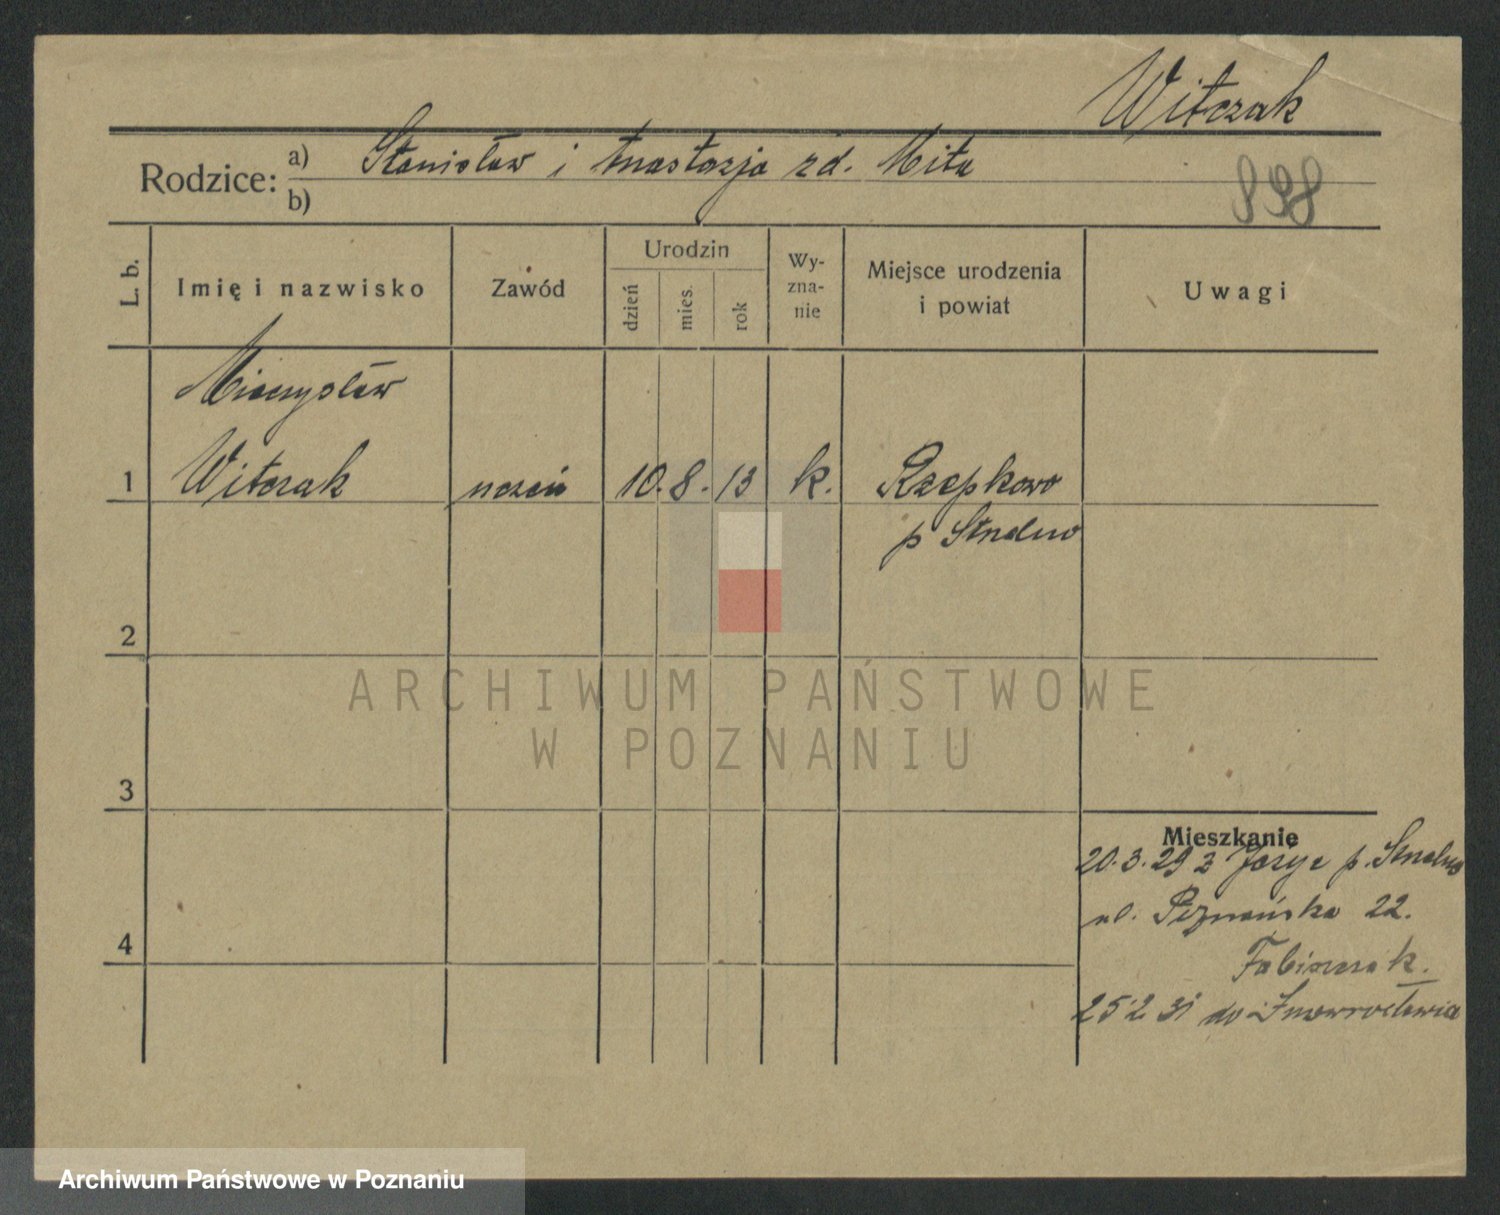 Witczak
Rodzice: a) Stanisław i Anastazja zd. Mita
b)
898
L. b.
Imię i nazwisko
Zawód
Urodzin
dzień
mies.
rok
Wy-
zna-
nie
Miejsce urodzenia
i powiat
Uwagi
Mieczysław
1 Witczak uczeń 10. 8. 13 k. Rzepkowo
p
2
ARCHIWUM PAŃSTWOWE
W POZNANIU
3
Mieszkanie
20.3.29 z p.
ul. Poznańska 22.
4
Fabiszczak.
25 2 31 do Inowrocławia
Archiwum Państwowe w Poznaniu